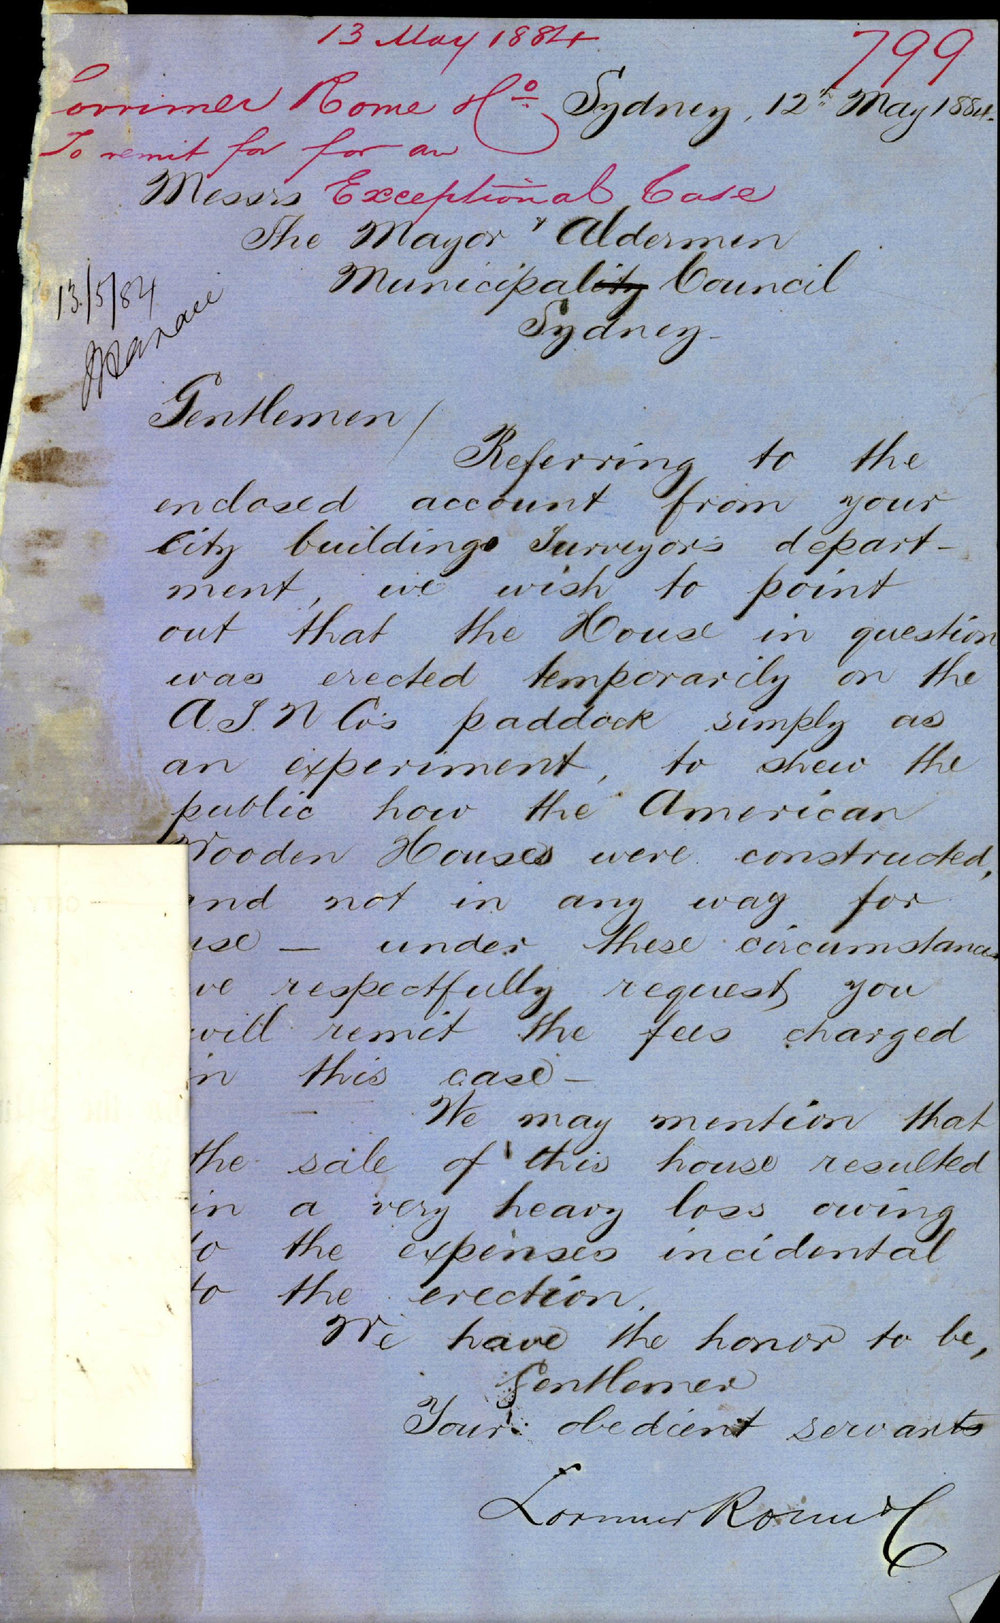 13 May 1884
799
Lorrimer Rome & Co
Sydney, 12th May 1884.
To remit for for an
Messrs Exceptional Case
The Mayor & Aldermen
Municipality Council
Sydney
13/5/84
Gentlemen/
Referring to the
enclosed account from your
City buildings Surveyors depart-
ment, we wish to point
out that the House in question
was erected temporarily on the
A.S.N Co's paddock simply as
an experiment, to shew the
public how the American
Wooden Houses were constructed,
and not in any way for
use — under these circumstances
we respectfully request you
will remit the fees charged
in this case —
We may mention that
the sale of this house resulted
in a very heavy loss owing
to the expenses incidental
to the erection.
We have the honor to be,
Gentlemen
Your obedient servants
Lorimer Rome & C